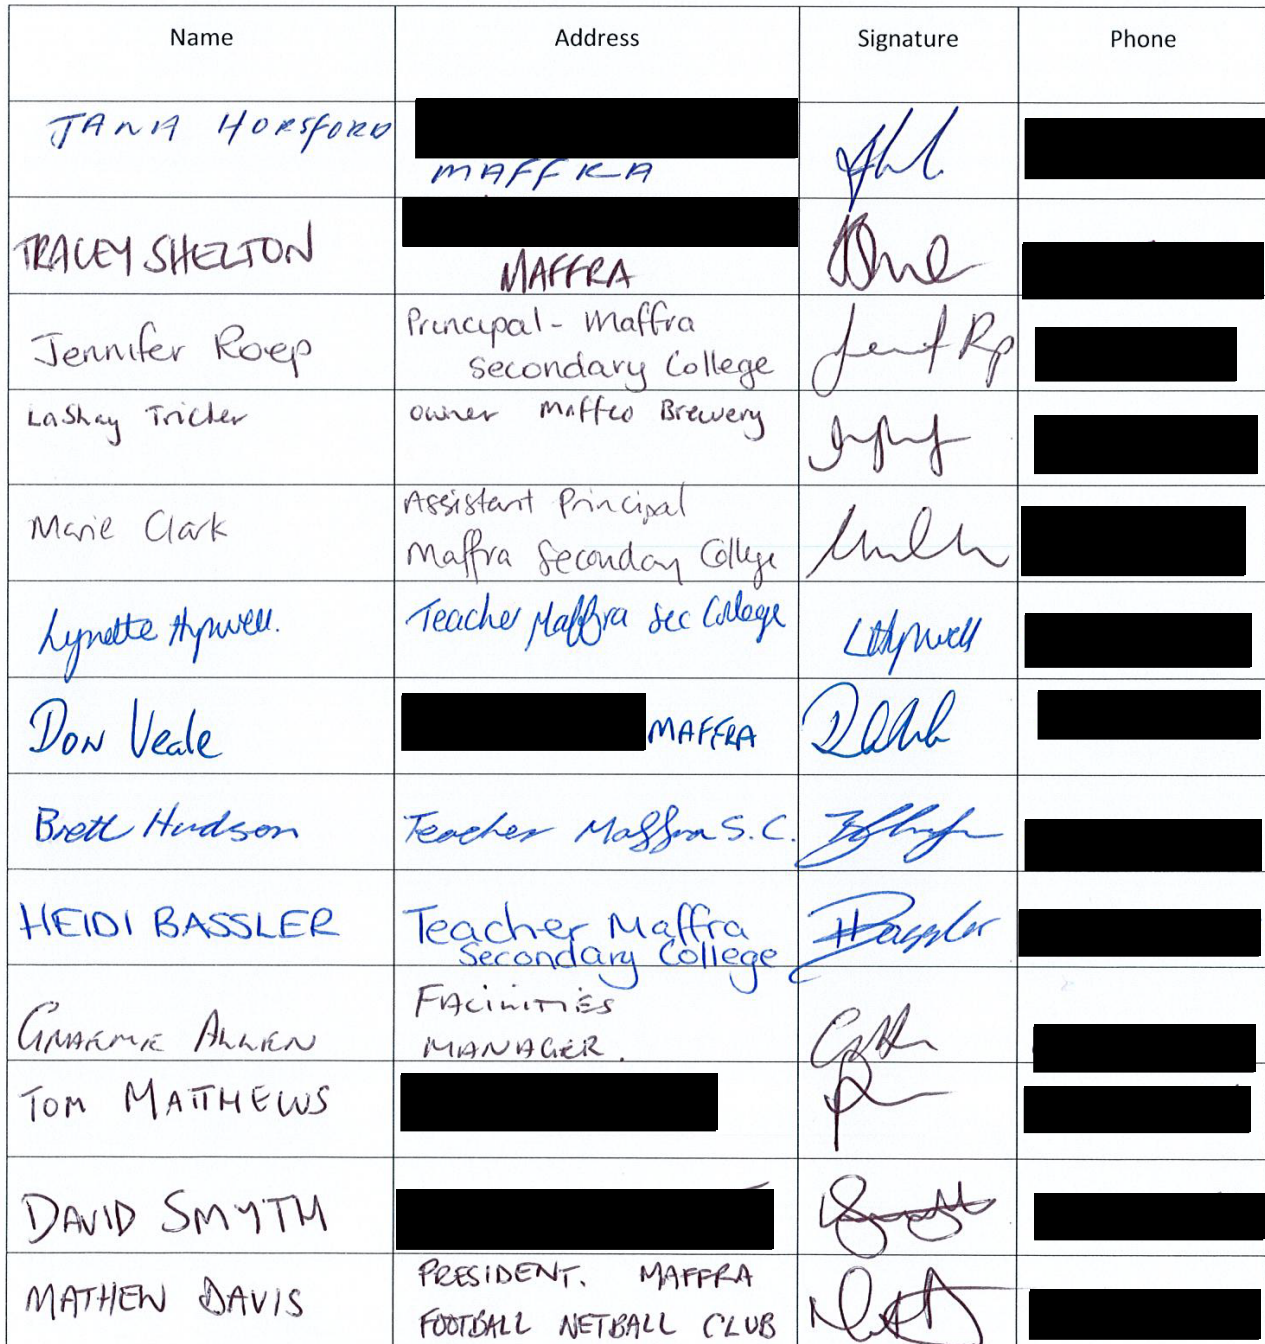 Name Address Signature Phone
TANIA HORSFORD
MAFFRA
TRACEY SHELTON
MAFFRA
Jennifer Roep
Principal - Maffra
Secondary College
LaShay Tricker
owner Maffco Brewery
Marie Clark
Assistant Principal
Maffra Secondary College
Lynette Hypwell.
Teacher Maffra Sec College
LHypwell
DON Veale
MAFFRA
Brett Hudson
Teacher Maffra S.C.
HEIDI BASSLER
Teacher Maffra
Secondary College
HBassler
GRAEME ALLEN
FACILITIES
MANAGER.
TOM MATTHEWS
DAVID SMYTH
MATHEW DAVIS
PRESIDENT. MAFFRA
FOOTBALL NETBALL CLUB